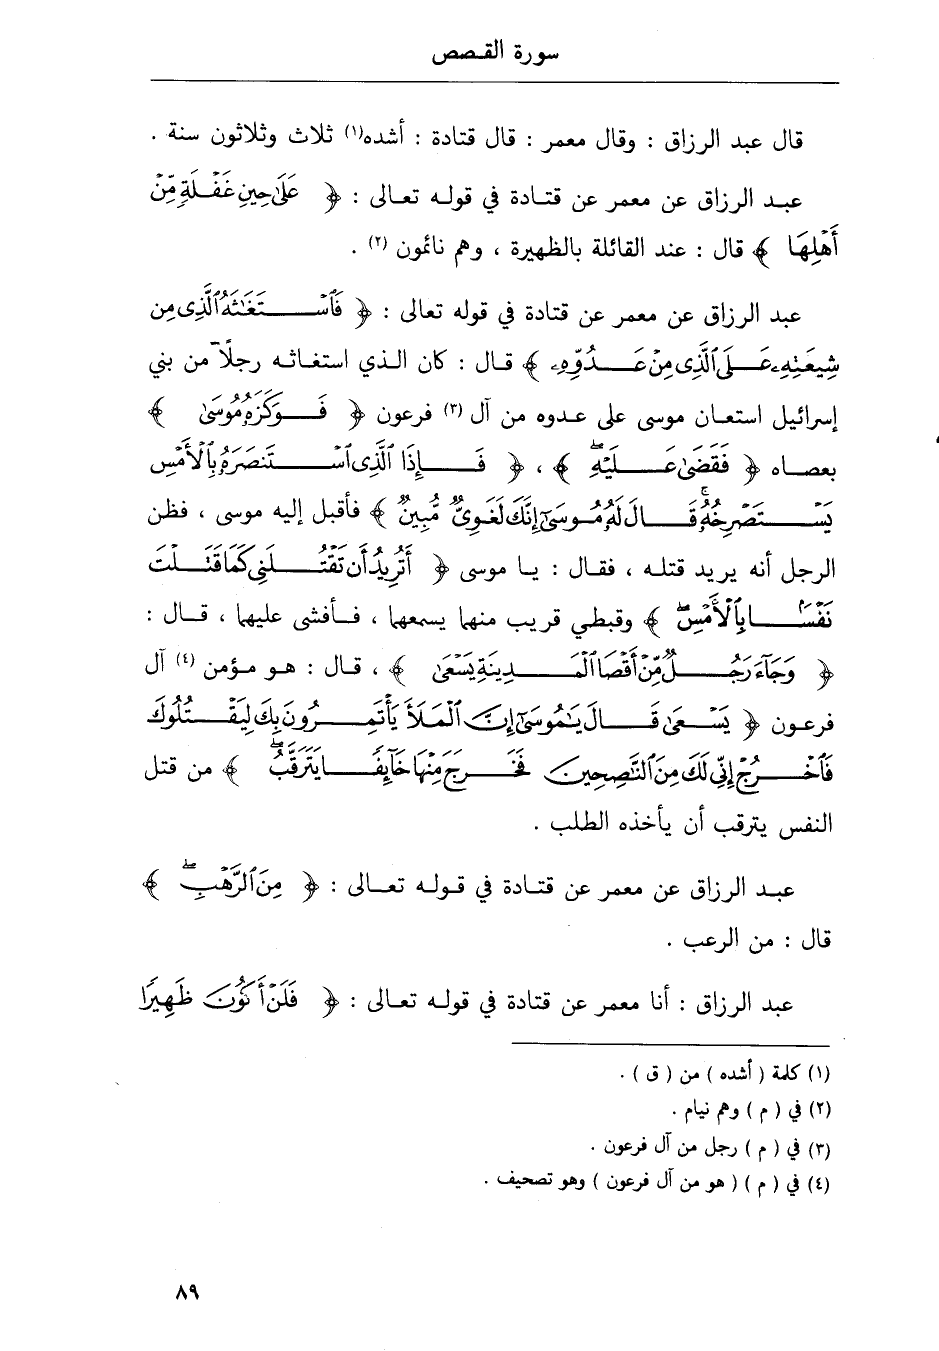 سورة القصص
قال عبد الرزاق : وقال معمر : قال قتادة : أشده(١) ثلاث وثلاثون سنة .
عبد الرزاق عن معمر عن قتادة في قوله تعالى : ﴿ عَلَىٰ حِينِ غَفْلَةٍ مِّنْ
أَهْلِهَا ﴾ قال : عند القائلة بالظهيرة ، وهم نائمون (٢) .
عبد الرزاق عن معمر عن قتادة في قوله تعالى : ﴿ فَٱسْتَغَٰثَهُ ٱلَّذِى مِن
شِيعَتِهِۦ عَلَى ٱلَّذِى مِنْ عَدُوِّهِۦ ﴾ قال : كان الذي استغاثه رجلاً من بني
إسرائيل استعان موسى على عدوه من آل (٣) فرعون ﴿ فَوَكَزَهُۥ مُوسَىٰ ﴾
بعصاه ﴿ فَقَضَىٰ عَلَيْهِ ۖ ﴾ ، ﴿ فَإِذَا ٱلَّذِى ٱسْتَنصَرَهُۥ بِٱلْأَمْسِ
يَسْتَصْرِخُهُۥ ۚ قَالَ لَهُۥ مُوسَىٰٓ إِنَّكَ لَغَوِىٌّ مُّبِينٌ ﴾ فأقبل إليه موسى ، فظن
الرجل أنه يريد قتله ، فقال : يا موسى ﴿ أَتُرِيدُ أَن تَقْتُلَنِى كَمَا قَتَلْتَ
نَفْسًۢا بِٱلْأَمْسِ ۖ ﴾ وقبطي قريب منهما يسمعهما ، فأفشى عليهما ، قال :
﴿ وَجَآءَ رَجُلٌ مِّنْ أَقْصَا ٱلْمَدِينَةِ يَسْعَىٰ ﴾ ، قال : هو مؤمن (٤) آل
فرعون ﴿ يَسْعَىٰ قَالَ يَٰمُوسَىٰٓ إِنَّ ٱلْمَلَأَ يَأْتَمِرُونَ بِكَ لِيَقْتُلُوكَ
فَٱخْرُجْ إِنِّى لَكَ مِنَ ٱلنَّٰصِحِينَ فَخَرَجَ مِنْهَا خَآئِفًا يَتَرَقَّبُ ۖ ﴾ من قتل
النفس يترقب أن يأخذه الطلب .
عبد الرزاق عن معمر عن قتادة في قوله تعالى : ﴿ مِنَ ٱلرَّهْبِ ۖ ﴾
قال : من الرعب .
عبد الرزاق : أنا معمر عن قتادة في قوله تعالى : ﴿ فَلَنْ أَكُونَ ظَهِيرًا
(١) كلمة ( أشده ) من ( ق ) .
(٢) في ( م ) وهم نيام .
(٣) في ( م ) رجل من آل فرعون .
(٤) في ( م ) ( هو من آل فرعون ) وهو تصحيف .
٨٩